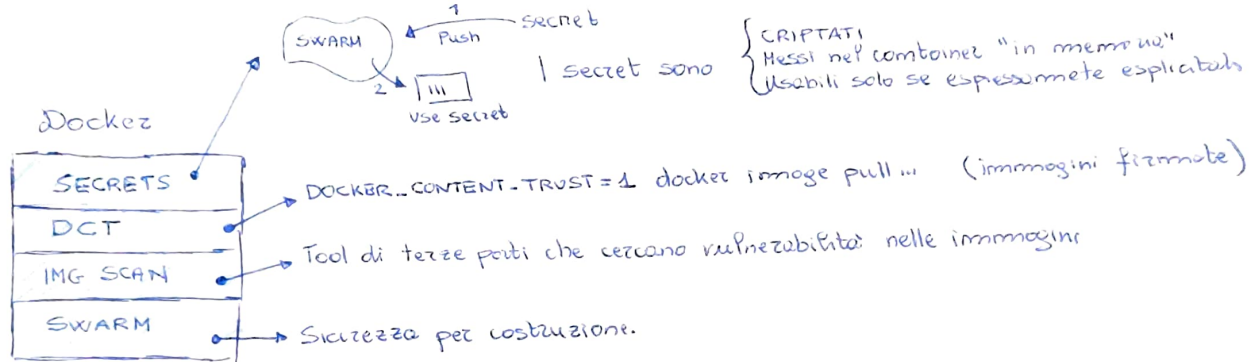 1
secret
Push
SWARM
2
use secret
I secret sono
CRIPTATI
Messi nel container "in memoria"
Usabili solo se espressamnete esplicitato
Docker
SECRETS
DCT
IMG SCAN
SWARM
DOCKER_CONTENT_TRUST=1 docker image pull... (immagini firmate)
Tool di terze parti che cercano vulnerabilità nelle immagini
Sicurezza per costruzione.